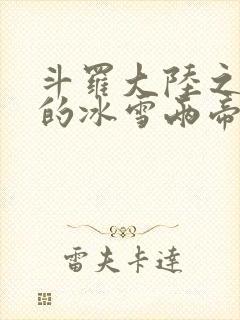 斗羅大陸之
的冰雪兩帝
雷夫卡達